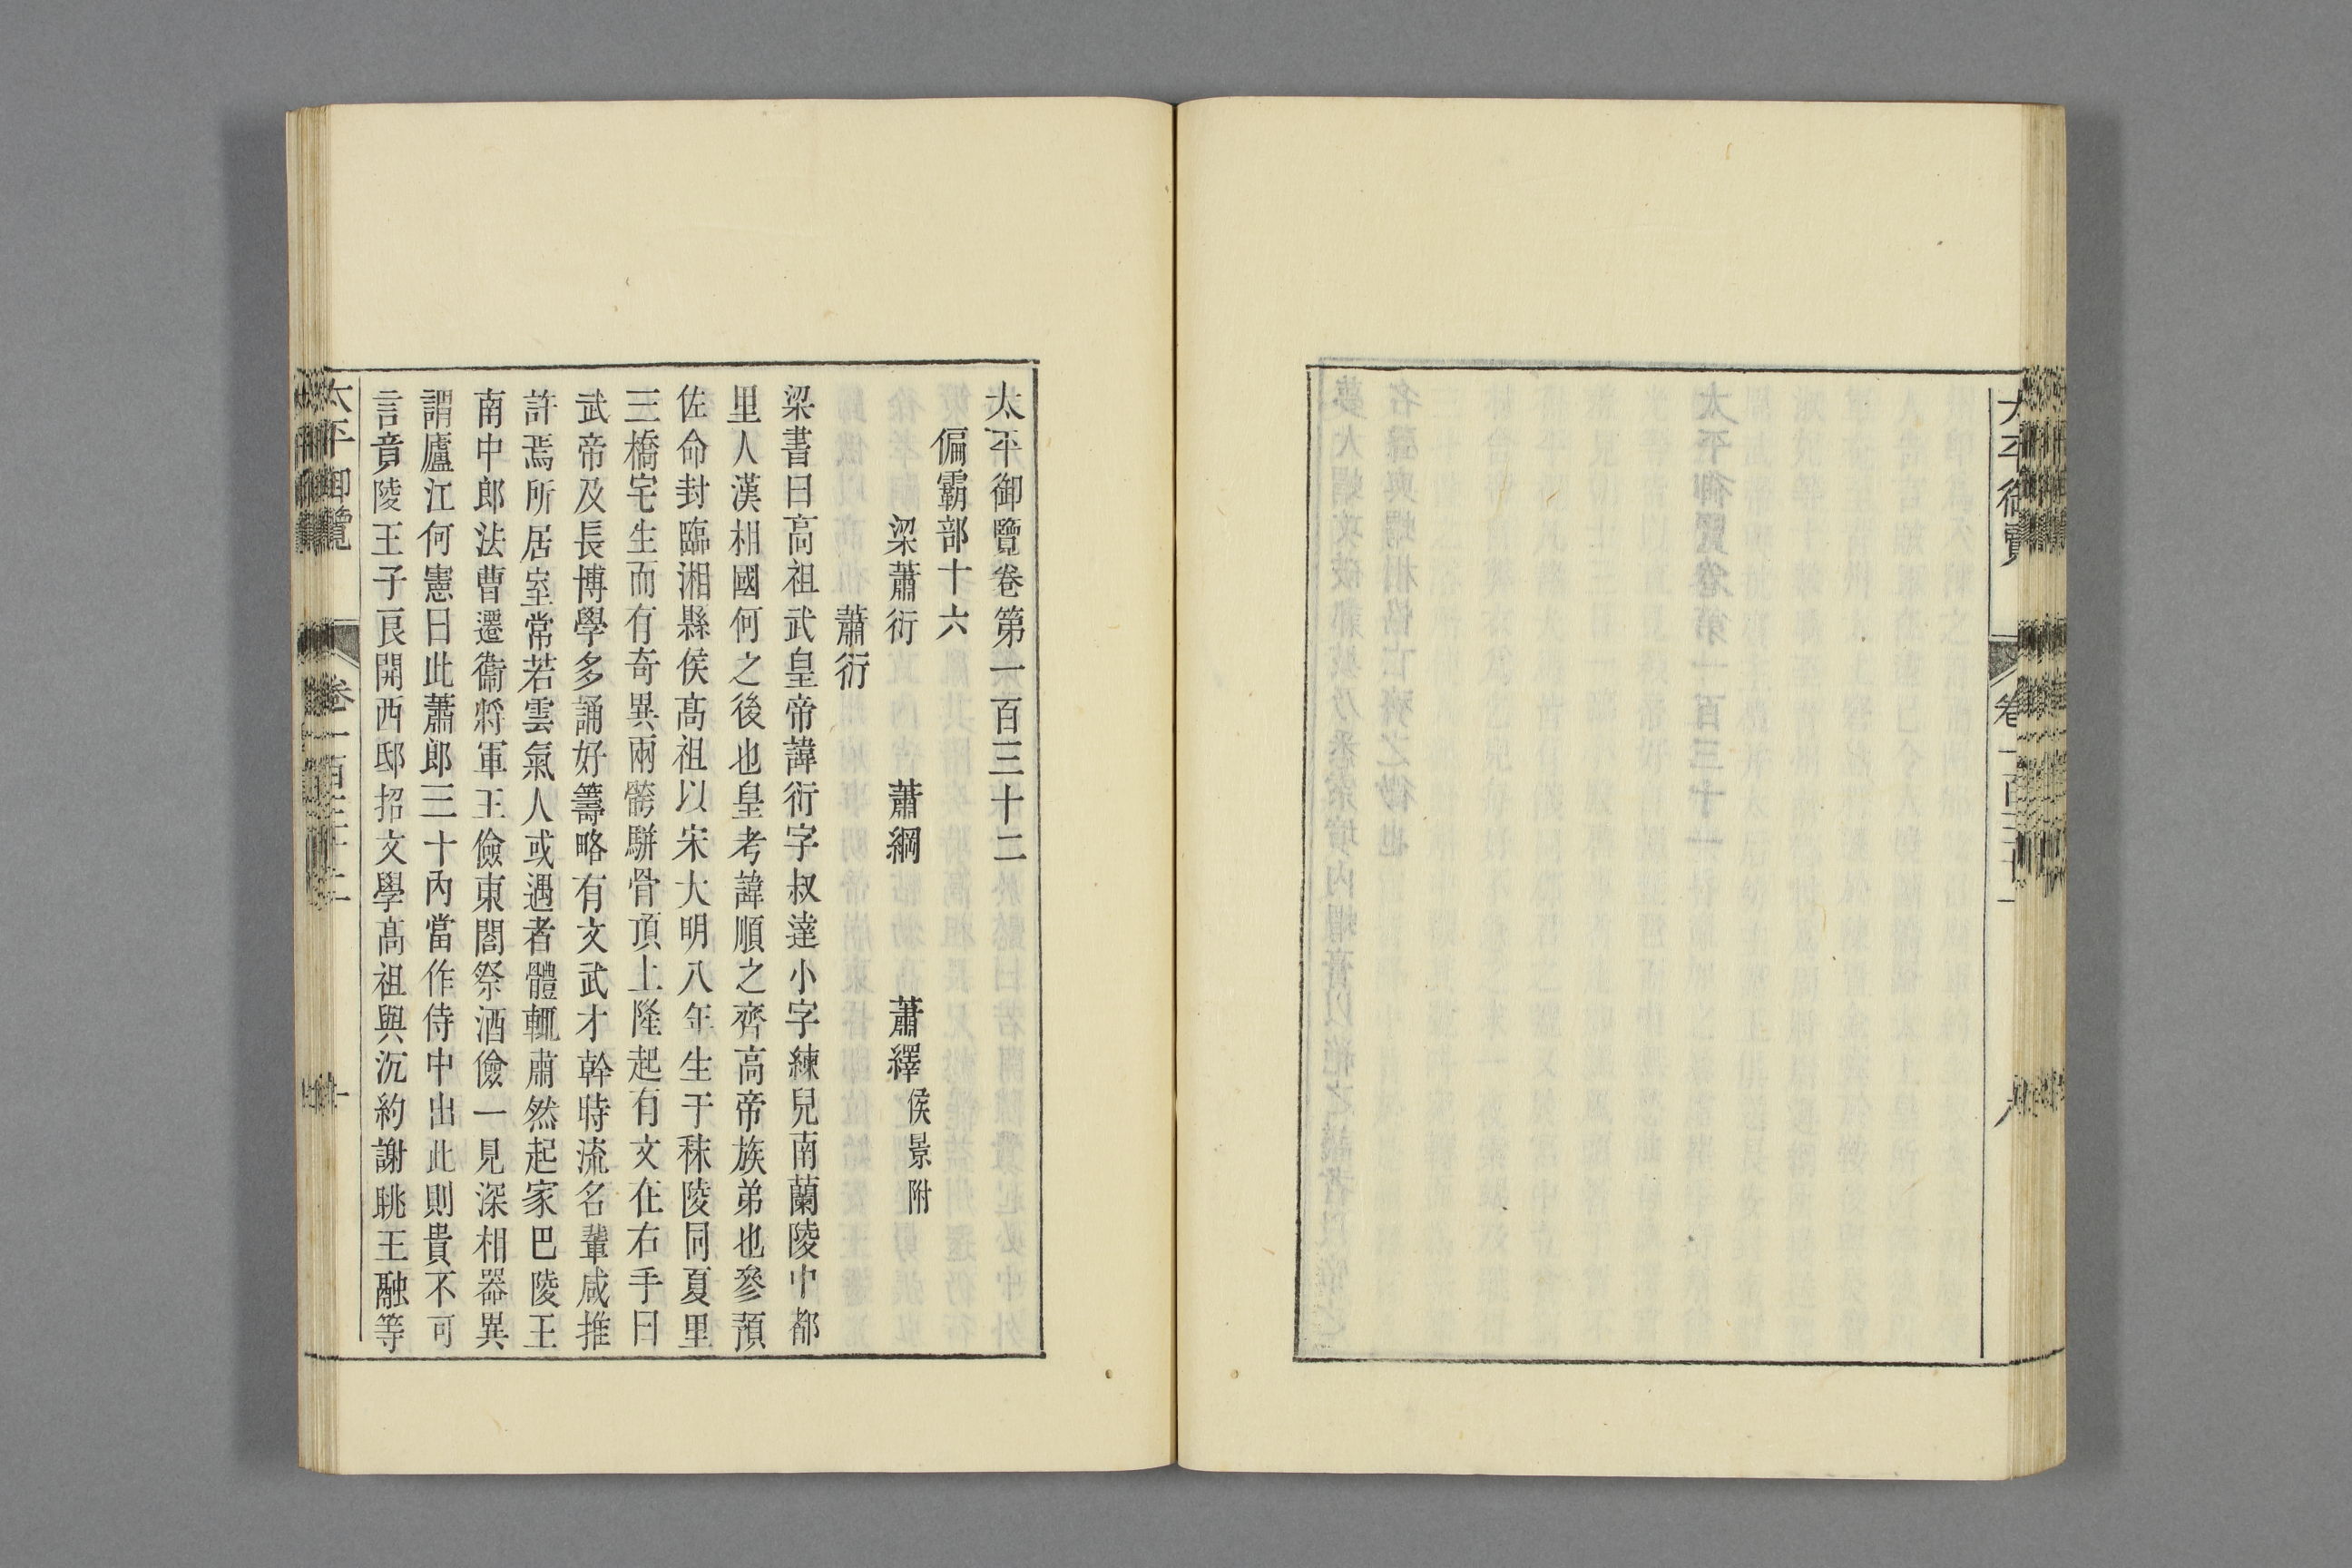 太平御覽
卷一百三十一
八
太平御覽卷第一百三十二
偏霸部十六
梁蕭衍　蕭綱　蕭繹侯景附
蕭衍
梁書曰高祖武皇帝諱衍字叔達小字練兒南蘭陵中都
里人漢相國何之後也皇考諱順之齊高帝族弟也參預
佐命封臨湘縣侯高祖以宋大明八年生于秣陵同夏里
三橋宅生而有奇異兩髈駢骨頂上隆起有文在右手曰
武帝及長博學多誦好籌略有文武才幹時流名輩咸推
許焉所居室常若雲氣人或遇者體輒肅然起家巴陵王
南中郎法曹遷衞將軍王儉東閤祭酒儉一見深相器異
謂廬江何憲曰此蕭郎三十內當作侍中出此則貴不可
言竟陵王子良開西邸招文學高祖與沉約謝眺王融等
太平御覽
卷一百三十二
一